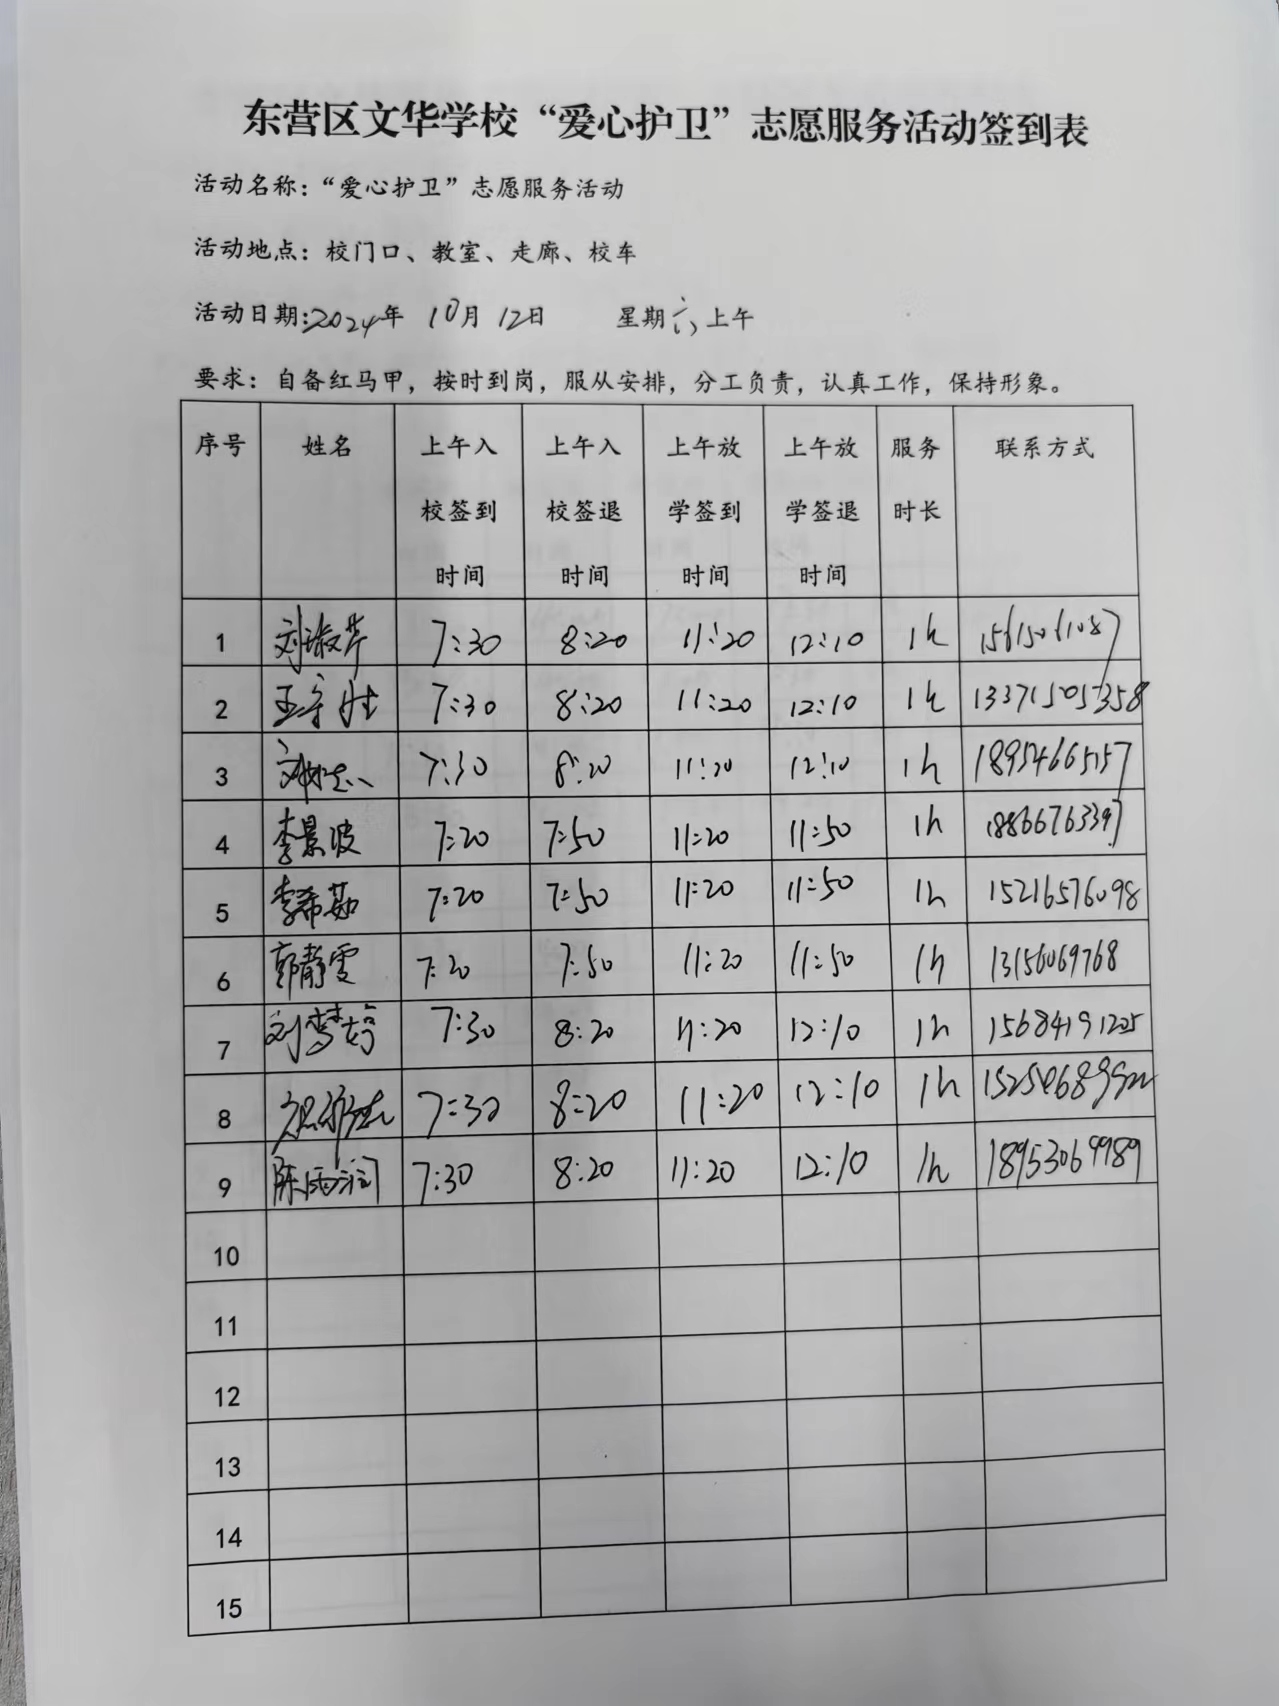 东营区文华学校“爱心护卫”志愿服务活动签到表
活动名称：“爱心护卫”志愿服务活动
活动地点：校门口、教室、走廊、校车
活动日期:2024年 10月 12日 星期六上午
要求：自备红马甲，按时到岗，服从安排，分工负责，认真工作，保持形象。
序号 姓名 上午入校签到时间 上午入校签退时间 上午放学签到时间 上午放学签退时间 服务时长 联系方式
1 刘淑芹 7:30 8:20 11:20 12:10 1h 15615061087
2 7:30 8:20 11:20 12:10 1h 13371505358
3 7:30 8:20 11:20 12:10 1h 18954665157
4 李景波 7:20 7:50 11:20 11:50 1h 18866763397
5 李希茹 7:20 7:50 11:20 11:50 1h 15216576098
6 郭静雯 7:20 7:50 11:20 11:50 1h 13156069768
7 刘梦婷 7:30 8:20 11:20 12:10 1h 15684191205
8 7:30 8:20 11:20 12:10 1h
9 陈雨润 7:30 8:20 11:20 12:10 1h 18953069989
10
11
12
13
14
15